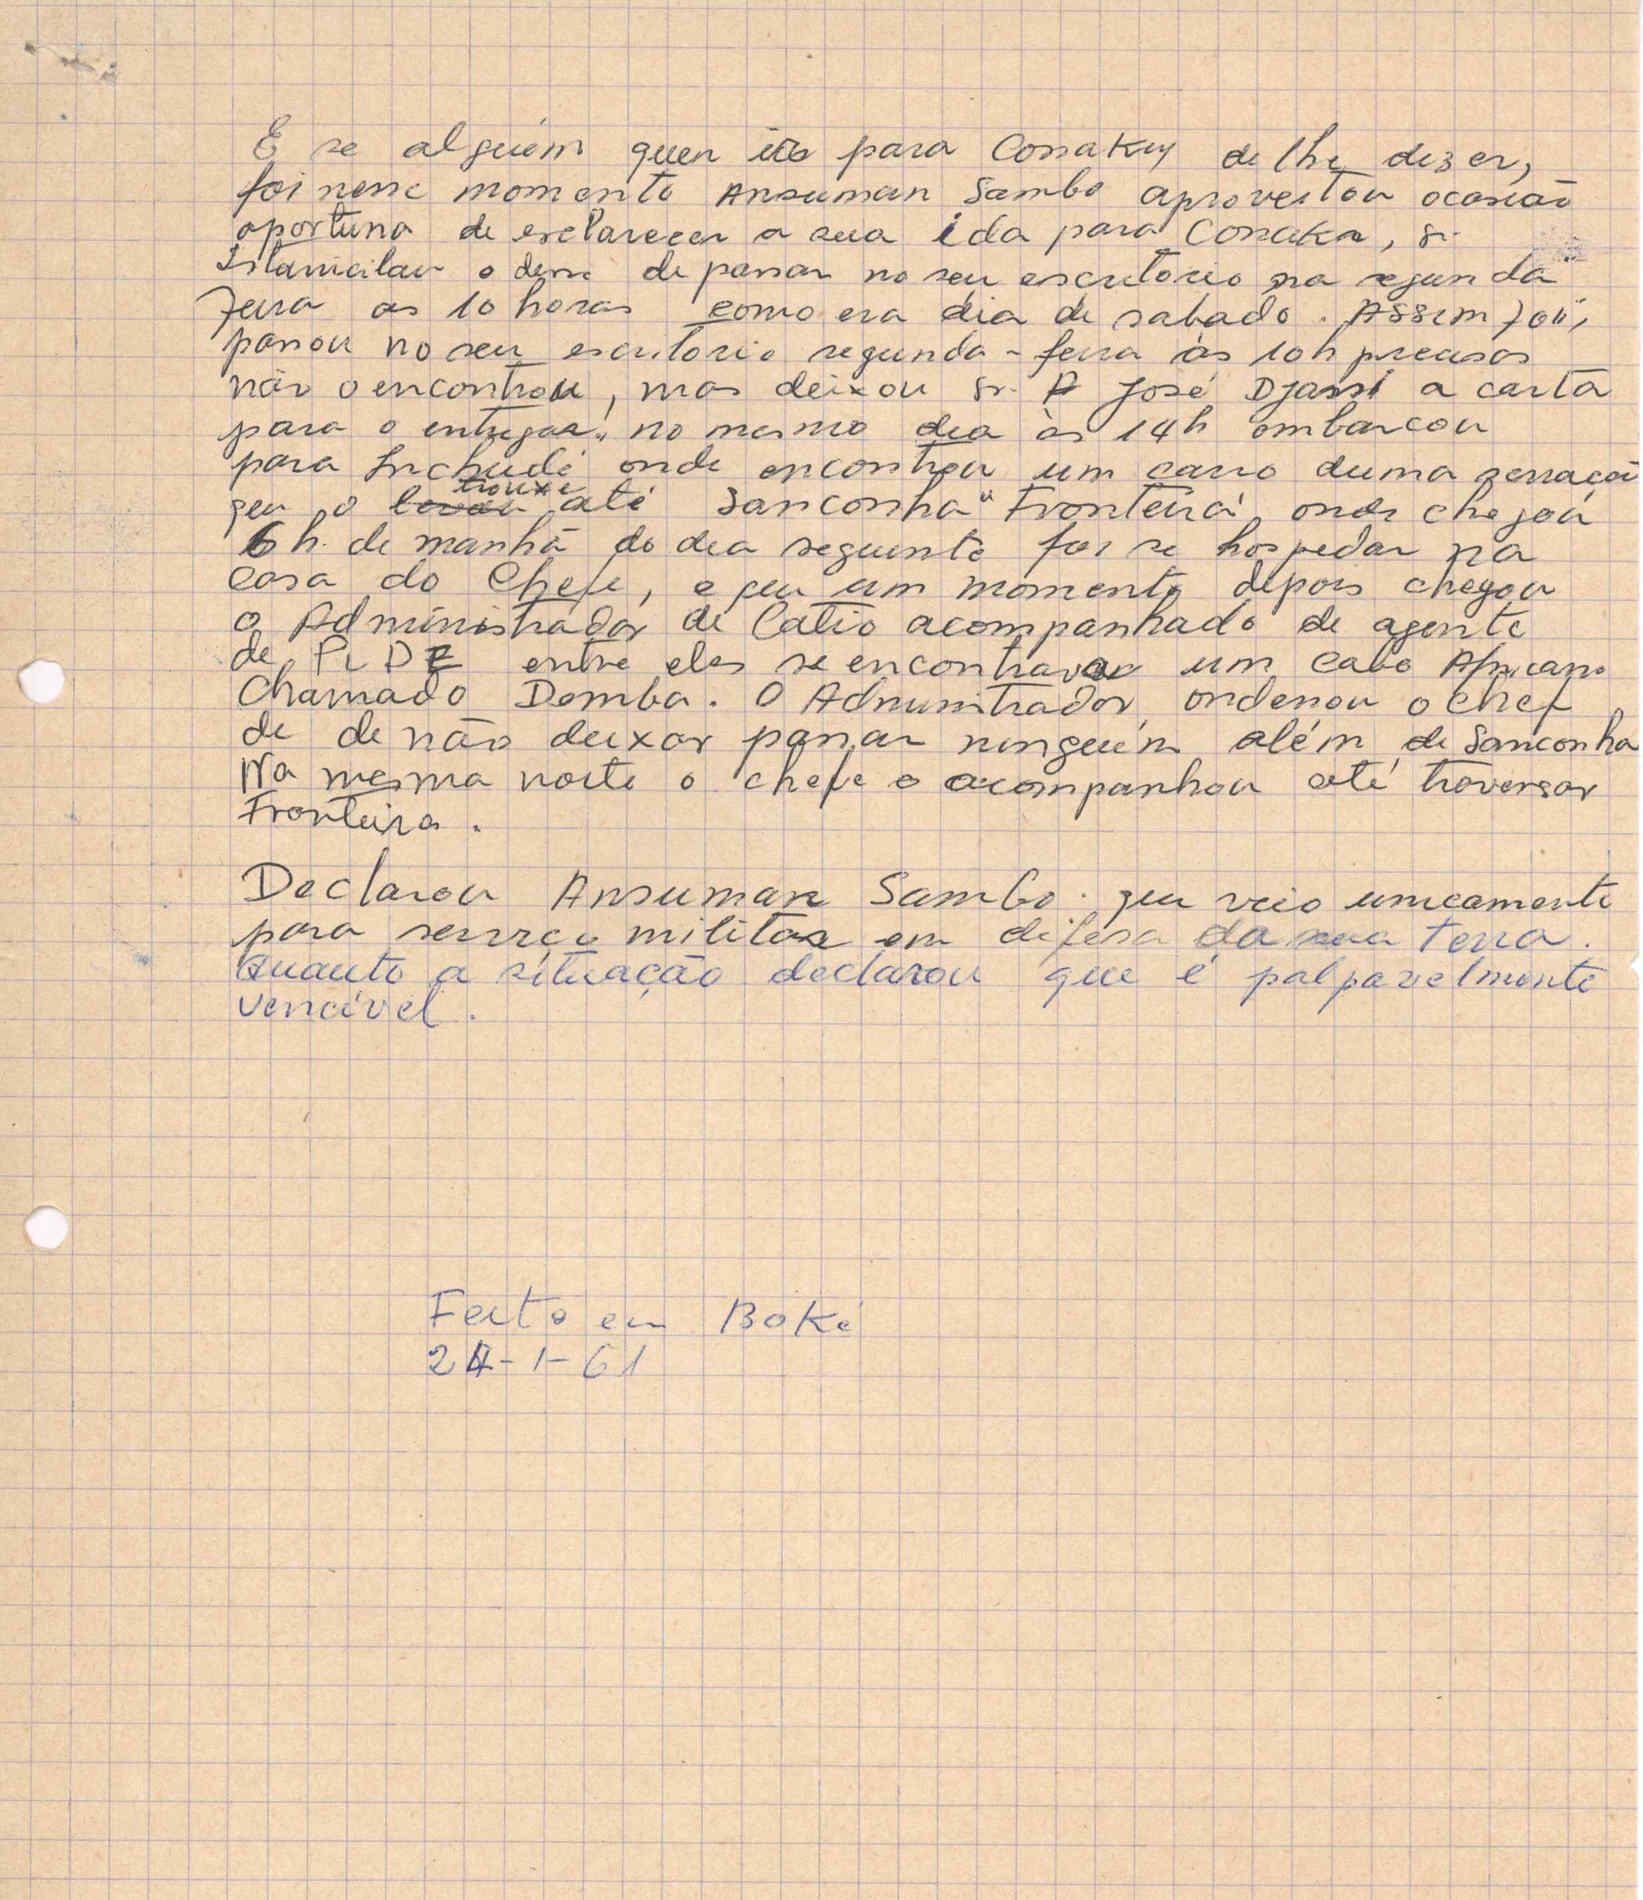 E se alguém quer ir para Conakry de lhe dizer,
foi nesse momento Ansuman Sambo aproveitou ocasião
oportuna de esclarecer a sua ida para Conakr, Sr.
o disse de passar no seu escritorio na segunda
feira as 10 horas como era dia de sabado. Assim foi,
passou no seu escritorio segunda-feira às 10h precisas
não o encontrou, mas deixou Sr. José Djassi a carta
para o entregar, no mesmo dia às 14h embarcou
para Inchudé onde encontrou um carro duma serração
que o levou trouxe até Sanconha "Fronteira", onde chegou
6h. de manhã do dia seguinte foi se hospedar na
casa do Chefe, e que um momento depois chegou
o Administrador de Catió acompanhado de agente
de PIDE entre eles se encontrava um cabo Africano
Chamado Demba. O Administrador ordenou o chef
de de não deixar passar ninguém além de Sanconha
Na mesma noite o chefe o acompanhou até traversar
Fronteira.
Declarou Ansuman Sambo. que veio unicamente
para serviço militar em difesa da sua terra.
Quanto a situação declarou que é palpavelmente
vencível.
Feito em Boké
24-1-61